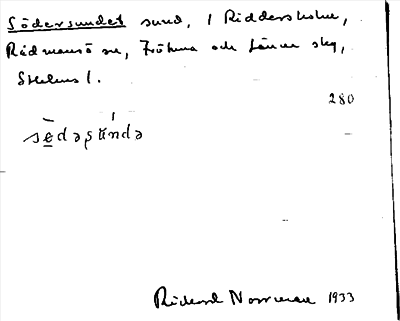 Södersundet sund, i Riddersholm,
Rådmansö sn, Frötuna och Länna slg,
Sthlms l.
280
sèdəʂúndə
Rickard Norrman 1933